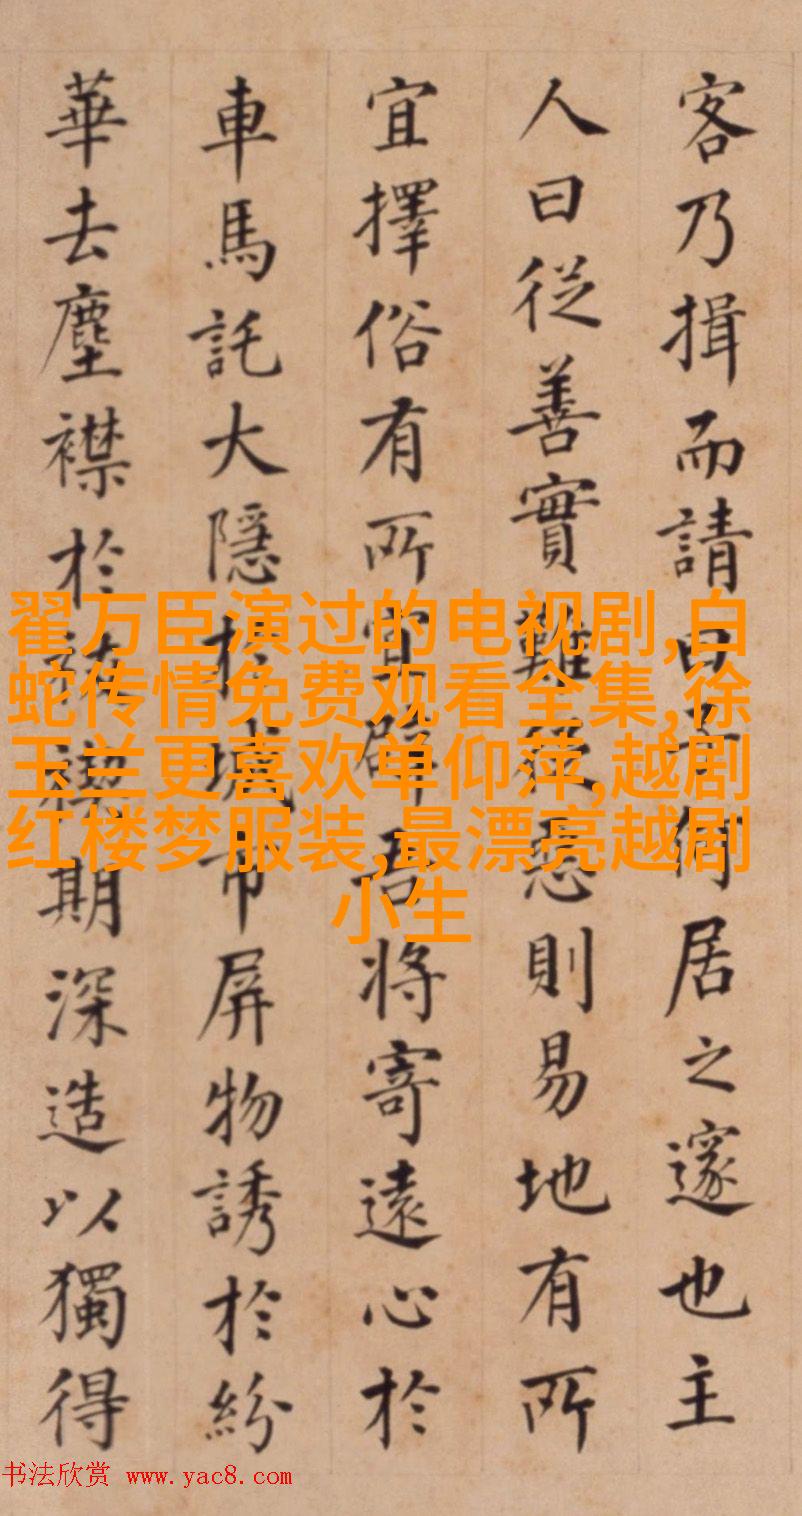 客乃揖而請曰子何居之邃也主
人曰從善實難從惡則易地有所
宜擇俗有所宜辟吾將寄遠心於
車馬託大隱於城市屏物誘於紛
華去塵襟於期深造以獨得
翟万臣演过的电视剧,白
蛇传情免费观看全集,徐
玉兰更喜欢单仰萍,越剧
红楼梦服装,最漂亮越剧
小生
书法欣赏 www.yac8.com